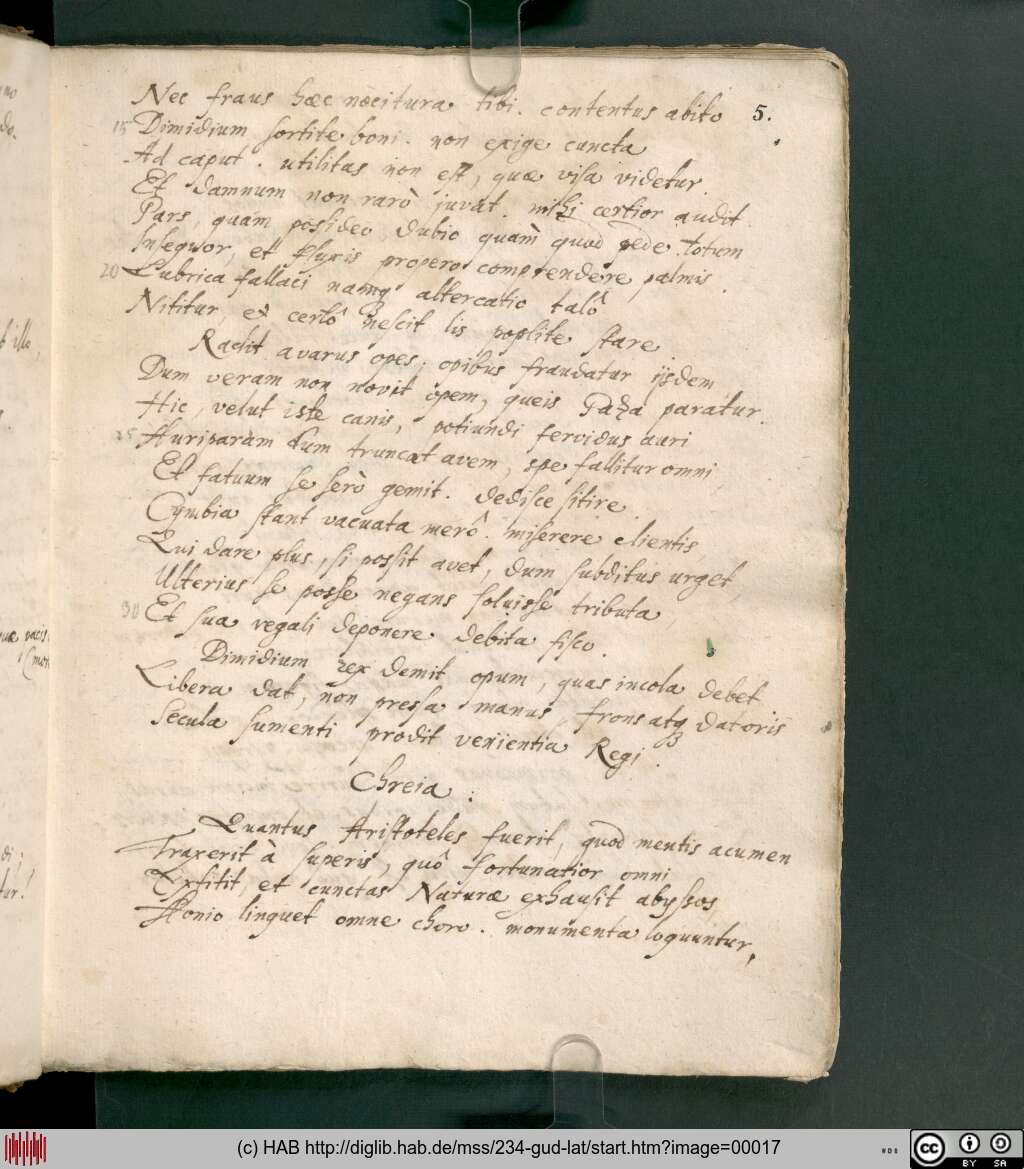 5.
Nec fraus hæc nocitura tibi. contentus abito
15 Dimidium sortite boni. non exige cuncta
Ad caput. utilitas non est, quæ visa videtur.
Et damnum non rarò juvat. mihi certior audit
Pars, quam possideo, dubio quàm quod pede totum
Insequor, et pluris propero comprendere palmis.
20 Lubrica fallaci namq altercatio talô
Nititur, et certô nescit lis poplite stare.
Radit avarus opes, opibus fraudatur ijsdem,
Dum veram non novit opem, queis Gaza paratur.
Hic, velut iste canis, potiundi fervidus auri
25 Auriparam dum truncat avem, spe fallitur omni,
Et fatuum se serò gemit. dedisce sitire.
Cymbia stant vacuata merô. miserere clientis,
Qui dare plus, si possit avet, dum subditus urget,
Ulterius se posse negans soluisse tributa,
30 Et sua regali deponere debita fisco.
Dimidium rex demit opum, quas incola debet
Libera dat, non pressa manus, frons atq datoris
Secula sumenti prodit venientia Regi.
Chreia.
Quantus Aristoteles fuerit, quod mentis acumen
Traxerit à superis, quô fortunatior omni
Exstitit, et cunctas Naturæ exhausit abyssos,
Aonio linquet omne choro. monumenta loquuntur,
quæ vacis
(c) HAB http://diglib.hab.de/mss/234-gud-lat/start.htm?image=00017
WDB
cc BY SA